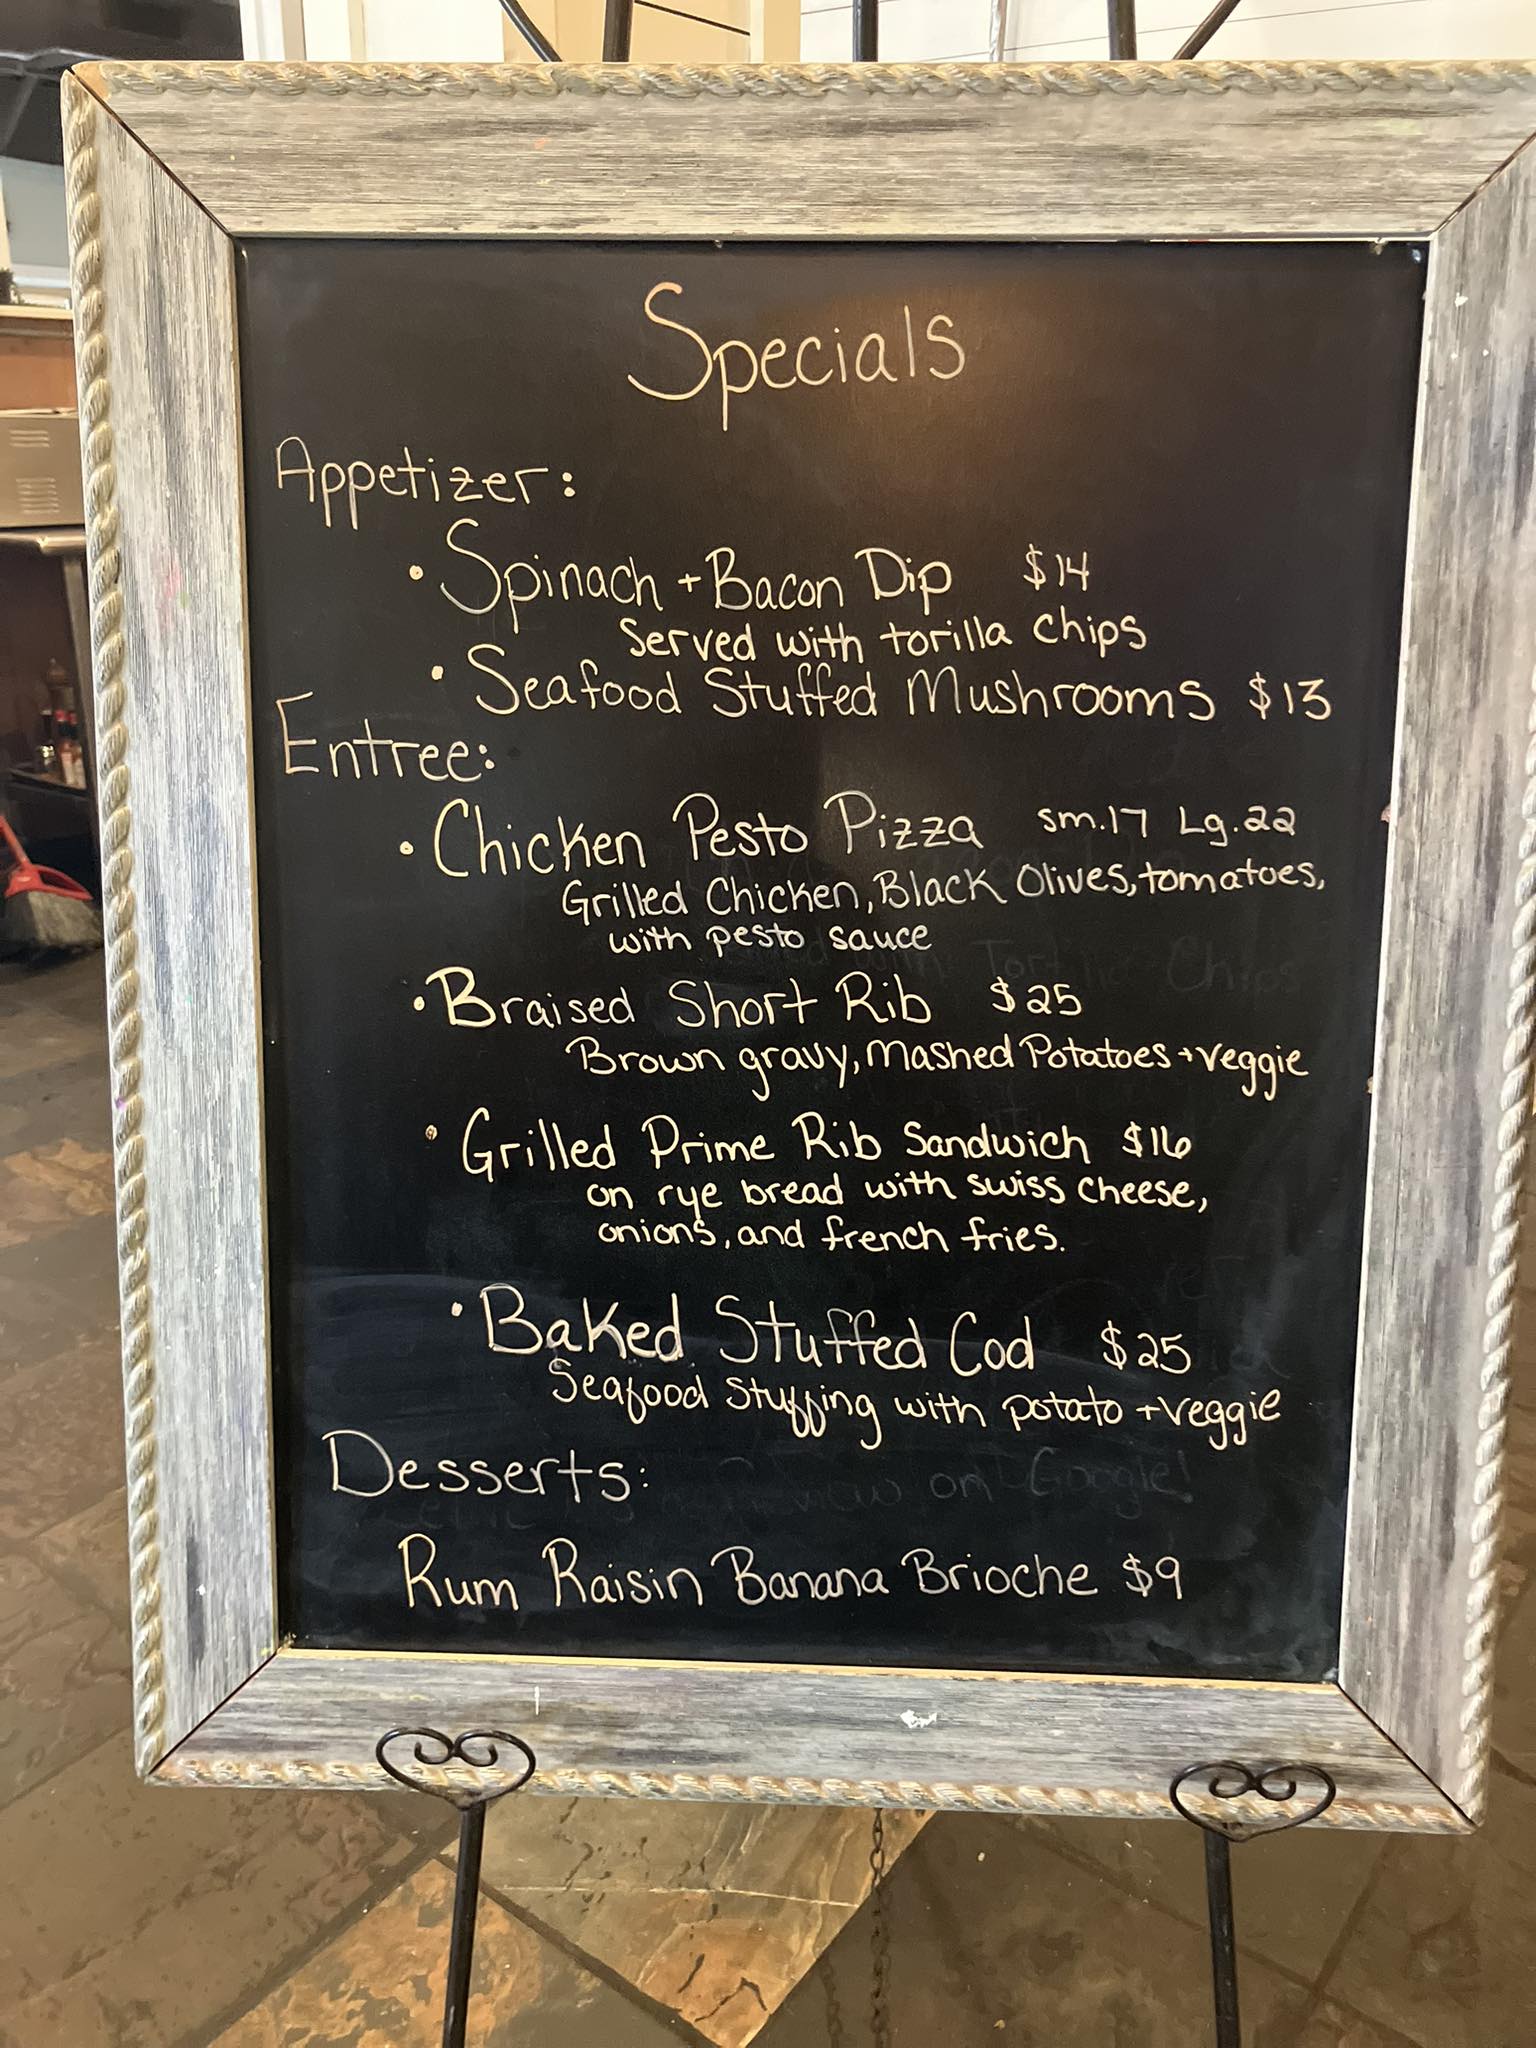 Specials
Appetizer:
• Spinach + Bacon Dip $14
Served with torilla chips
• Seafood Stuffed Mushrooms $13
Entree:
• Chicken Pesto Pizza sm.17 Lg.22
Grilled Chicken, Black Olives, tomatoes,
with pesto sauce
• Braised Short Rib $25
Brown gravy, Mashed Potatoes + veggie
• Grilled Prime Rib Sandwich $16
on rye bread with swiss cheese,
onions, and french fries.
• Baked Stuffed Cod $25
Seafood Stuffing with potato + veggie
Desserts:
on Google!
Rum Raisin Banana Brioche $9